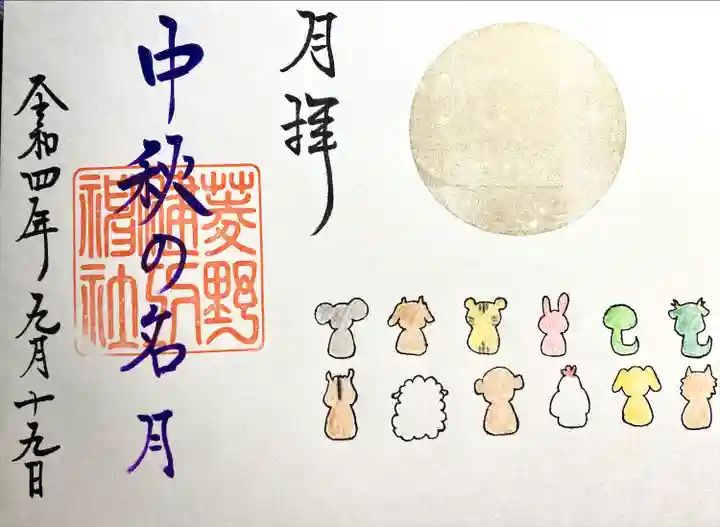 月拝
中秋の名月
菱野
社
令和四年九月十九日